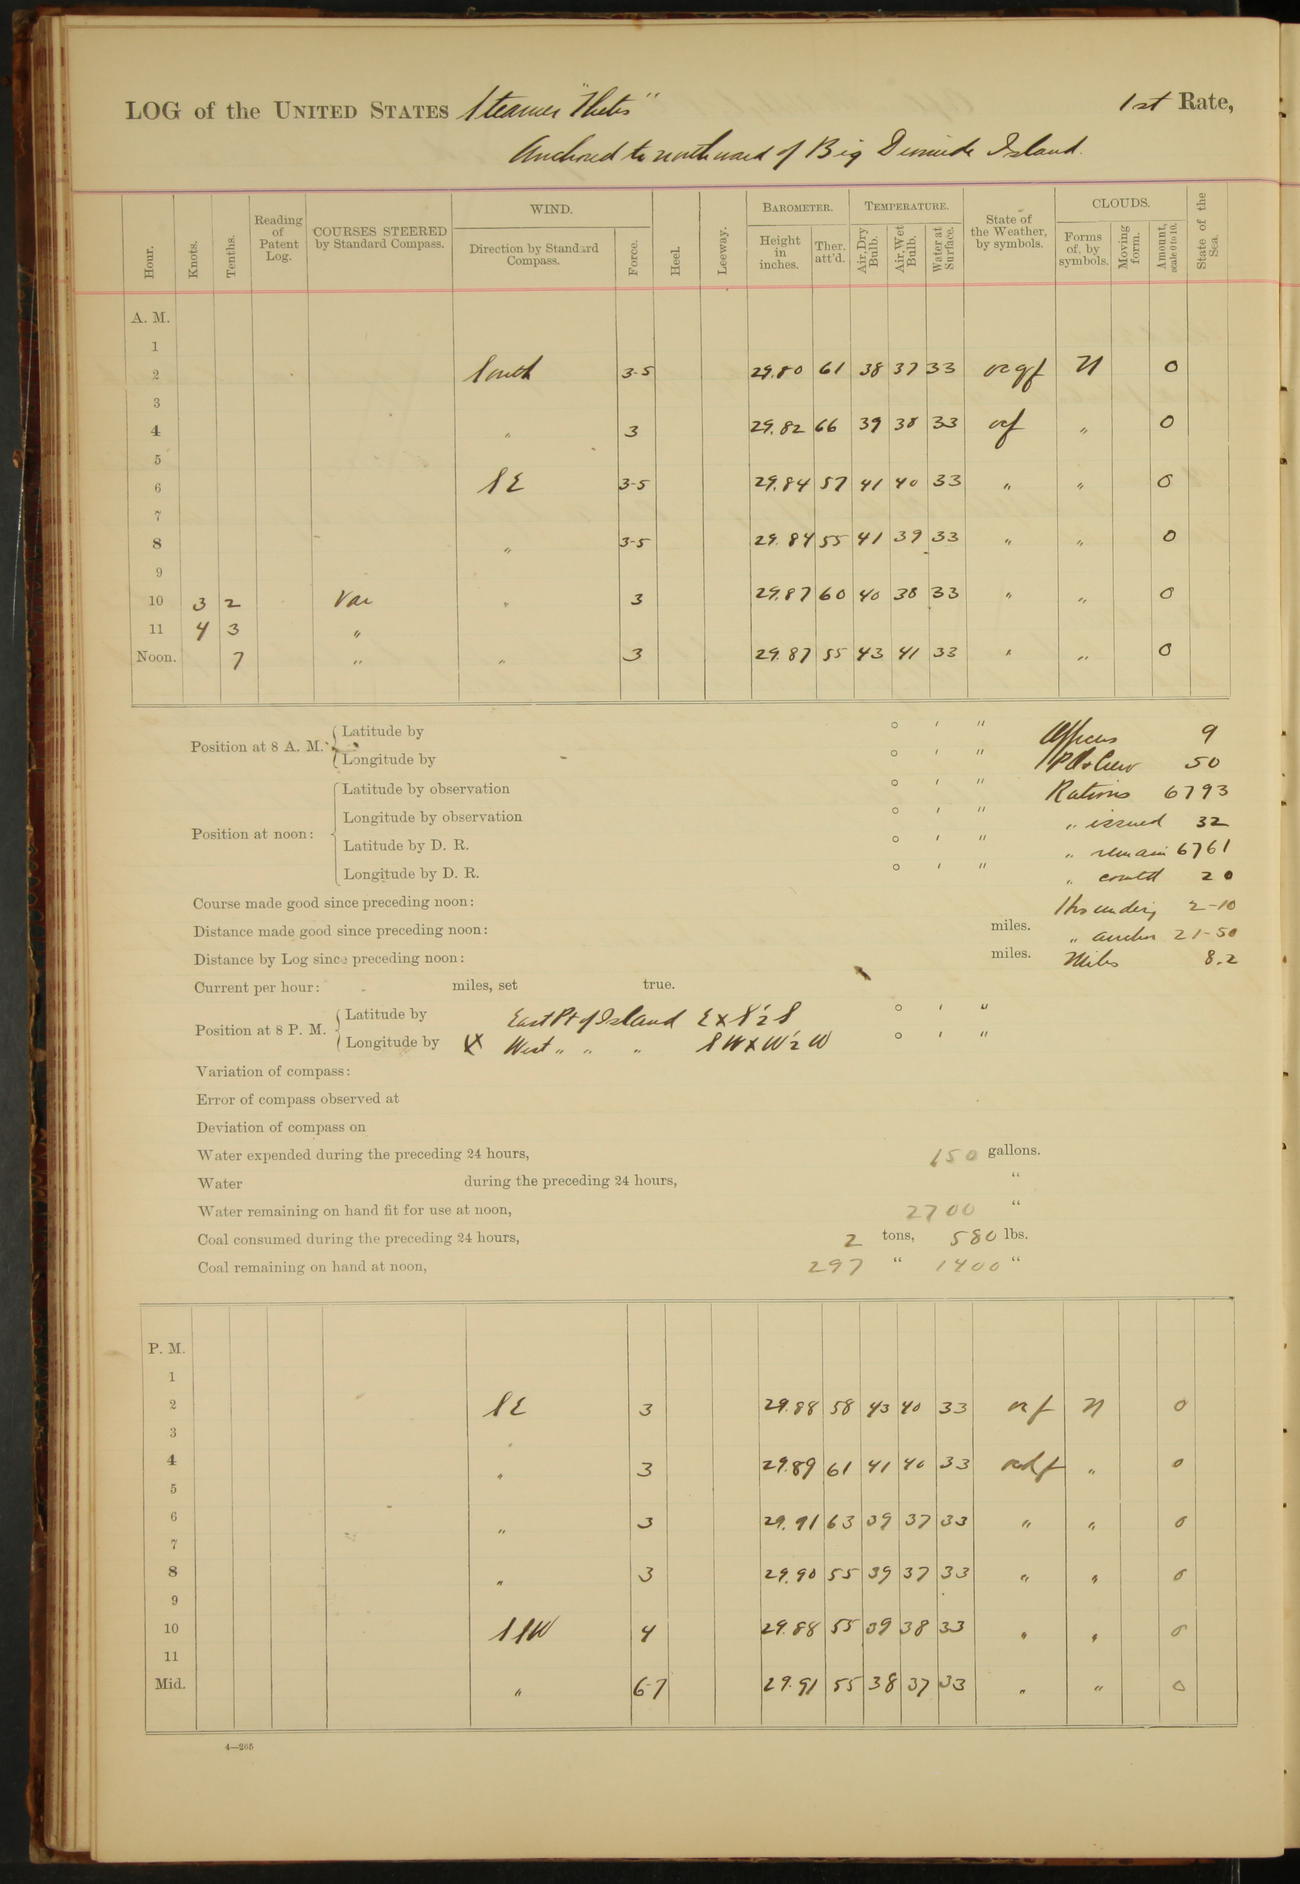 LOG of the UNITED STATES Steamer "Thetis" 1st Rate,
Anchored to northward of Big Diomede Island.
Hour. Knots. Tenths. Reading of Patent Log. COURSES STEERED by Standard Compass. WIND. Direction by Standard Compass. Force. Heel. Leeway. BAROMETER. Height in inches. Ther. att'd. TEMPERATURE. Air, Dry Bulb. Air, Wet Bulb. Water at Surface. State of the Weather, by symbols. CLOUDS. Forms of, by symbols. Moving form. Amount, scale 0 to 10. State of the Sea.
A. M.
1
2 South 3-5 29.80 61 38 37 33 ocgf N 0
3
4 " 3 29.82 66 39 38 33 ocf " 0
5
6 SE 3-5 29.84 57 41 40 33 " " 0
7
8 " 3-5 29.84 55 41 39 33 " " 0
9
10 3 2 Var " 3 29.87 60 40 38 33 " " 0
11 4 3 "
Noon. 7 " " 3 29.87 55 43 41 33 " " 0
Position at 8 A. M. Latitude by ° ' " Officers 9
Longitude by ° ' " P.O. & Crew 50
Position at noon: Latitude by observation ° ' " Rations 6793
Longitude by observation ° ' " " issued 32
Latitude by D. R. ° ' " " remain 6761
Longitude by D. R. ° ' " " comtd 20
Course made good since preceding noon: Hrs undrwy 2-10
Distance made good since preceding noon: miles. " anchor 21-50
Distance by Log since preceding noon: miles. Miles 8.2
Current per hour: miles, set true.
Position at 8 P. M. Latitude by East Pt of Island E x S ½ S ° ' "
Longitude by West " " " SW x W ½ W ° ' "
Variation of compass:
Error of compass observed at
Deviation of compass on
Water expended during the preceding 24 hours, 150 gallons.
Water during the preceding 24 hours, "
Water remaining on hand fit for use at noon, 2700 "
Coal consumed during the preceding 24 hours, 2 tons, 580 lbs.
Coal remaining on hand at noon, 297 " 1400 "
P. M.
1
2 SE 3 29.88 58 43 40 33 ocf N 0
3
4 " 3 29.89 61 41 40 33 ocdf " 0
5
6 " 3 29.91 63 39 37 33 " " 0
7
8 " 3 29.90 55 39 37 33 " " 0
9
10 SSW 4 29.88 55 39 38 33 " " 0
11
Mid. " 6-7 29.91 55 38 37 33 " " 0
4—265